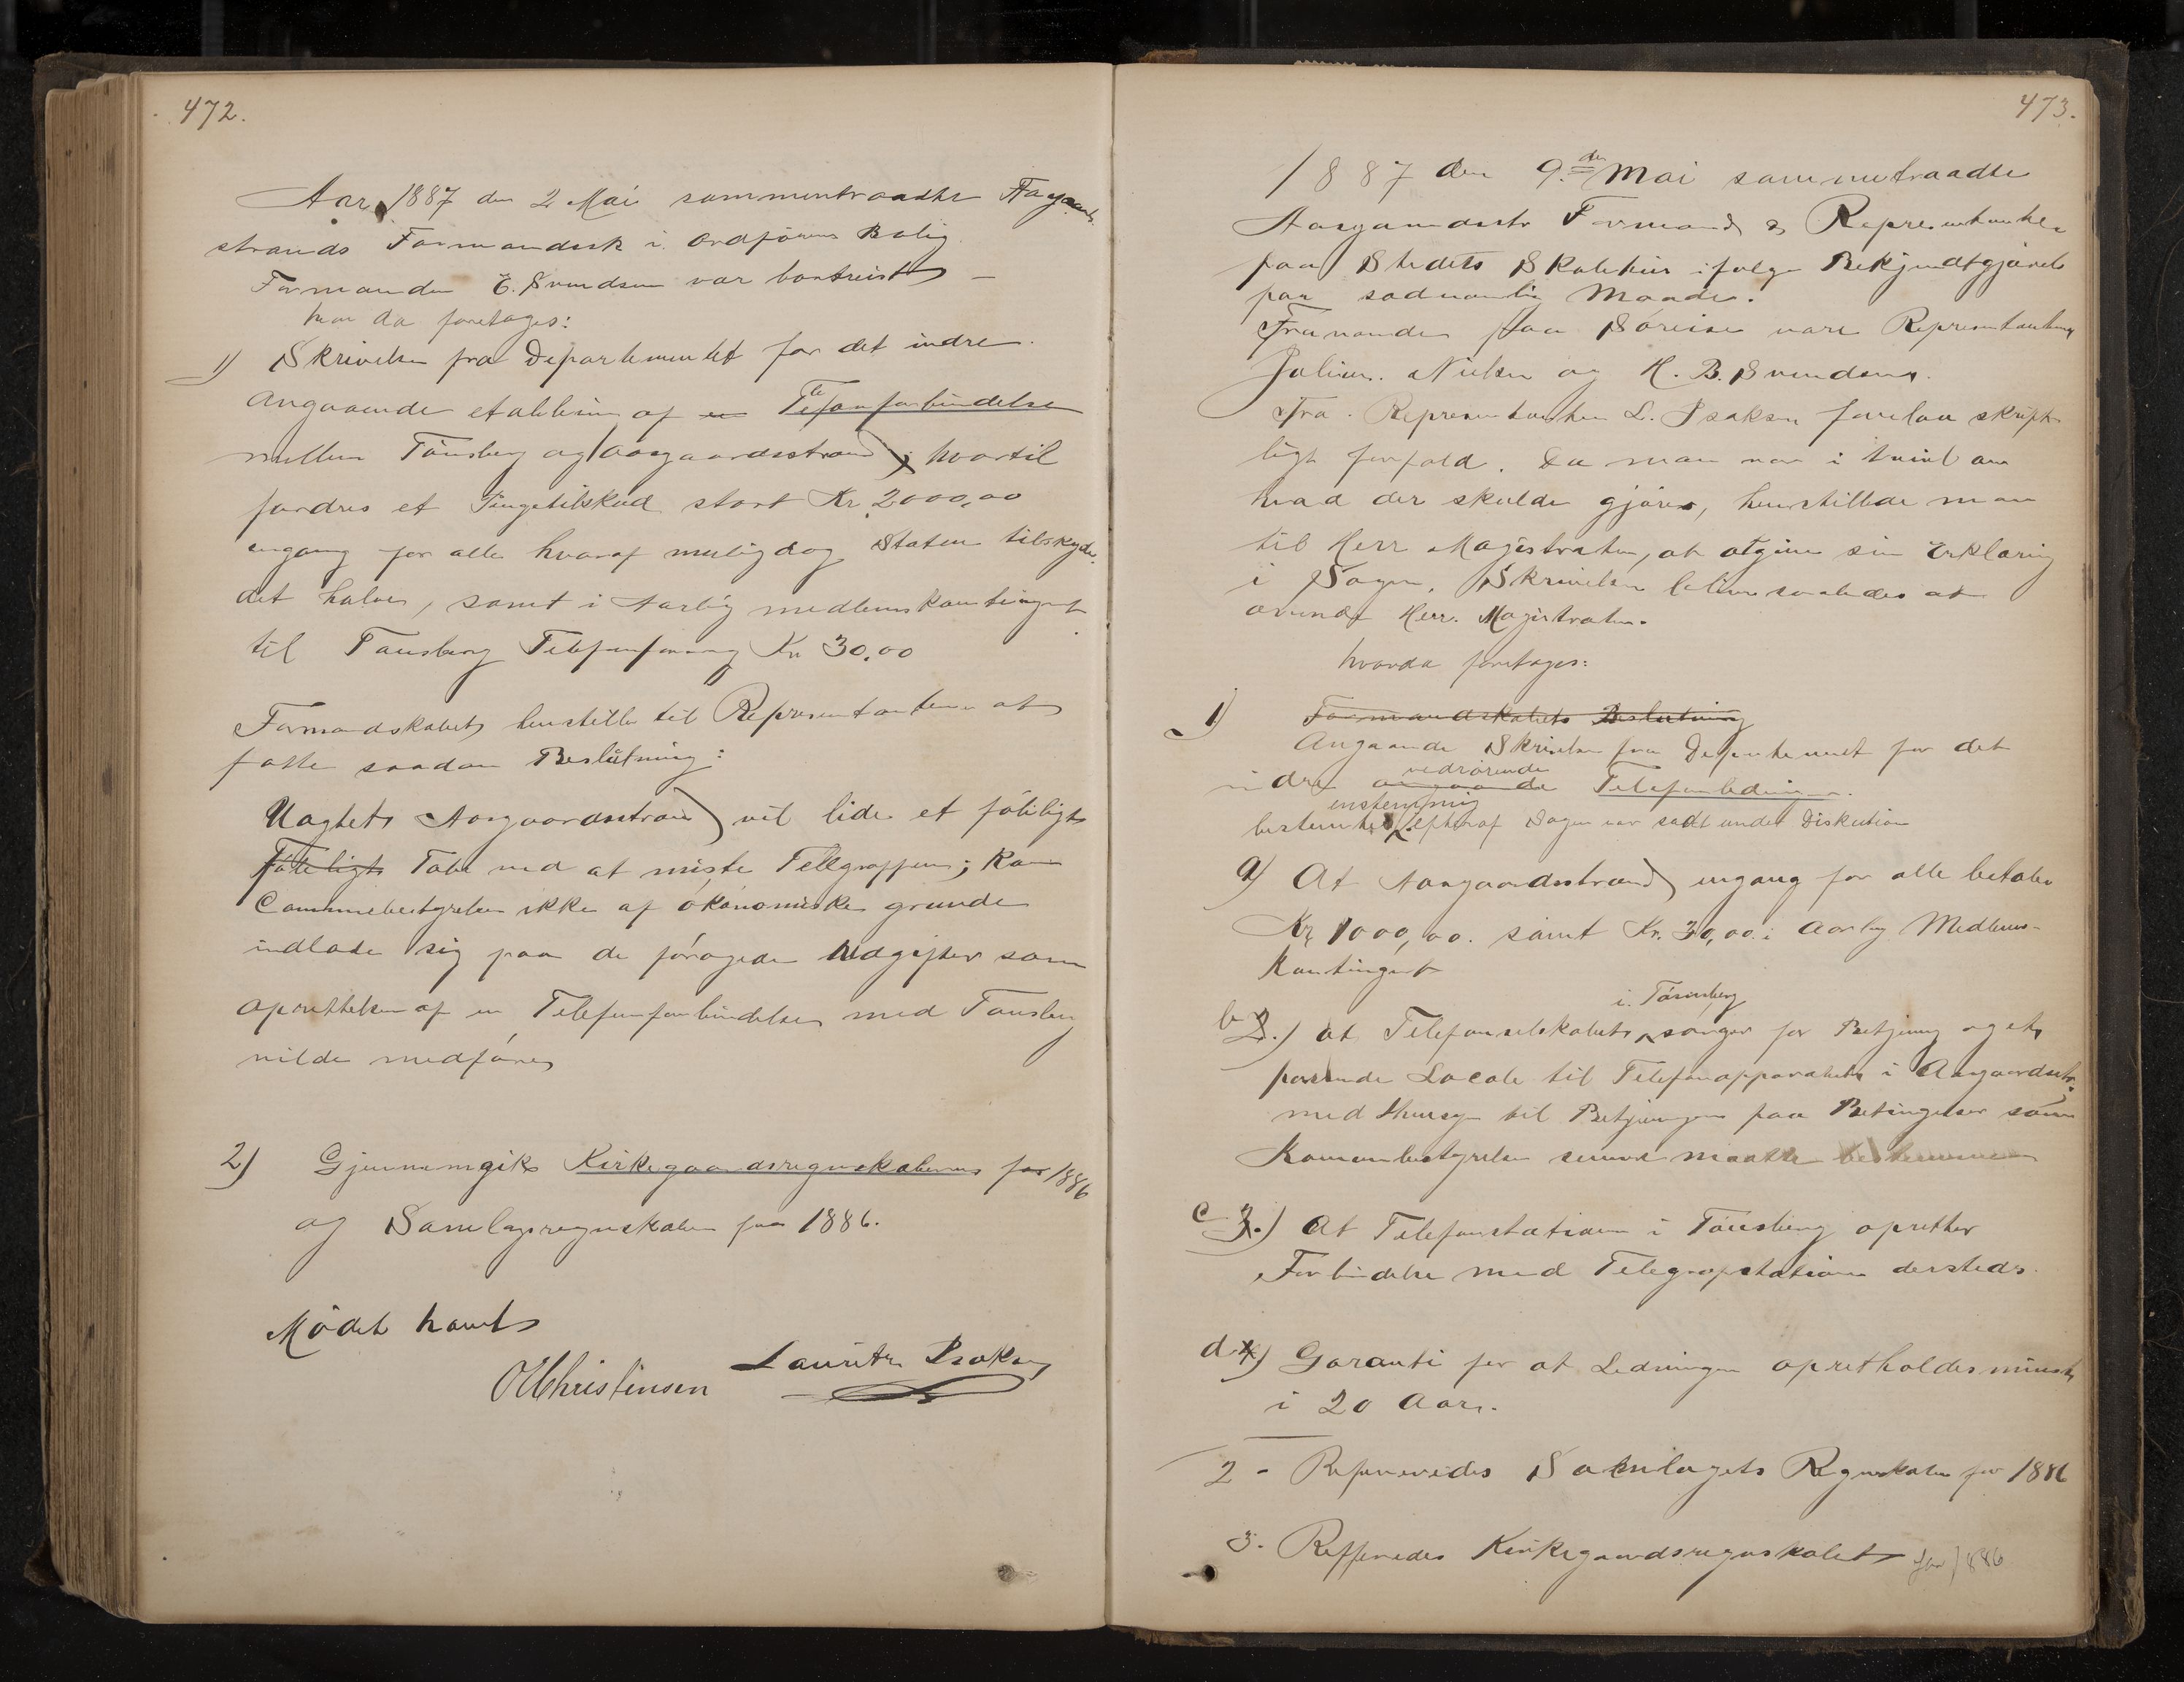 472.
Aar 1887 den 2 Mai sammentraadte Aasgaards
strands Formandsk i Ordførens Bolig
Formanden E. Svendsen var bortreist –
hvor da foretages:
1) Skrivelse fra Departementet for det indre
angaaende etablering af en Telefonforbindelse
mellem Tønsberg og Aasgaardsstrand, hvortil
fordres et Pengetilskud stort Kr. 2000,00
engang for alle hvoraf muligdog Staten tilskyder
det halve, samt i Aarlig medlemskontingent
til Tønsberg Telefonforening Kr 30,00
Formandskabet henstiller til Representanterne at
fatte saadan Beslutning:
Uagtet Aasgaardsstrand vil lide et føleligt
føleligt Tab ved at miste Tellegraffen; kan
Communebestyrelsen ikke af økonomiske grunde
indlade sig paa de forøgede Udgifter som
oprettelsen af en Telefonforbindelse med Tønsberg
vilde medføre
2) Gjennemgik Kirkegaardsregnskaberne for 1886
og Samlagsregnskabet for 1886.
Mødet hævet
O Christensen Lauritz Isaksen
473.
1887 den 9.de Mai sammentraadte
Aasgaardsstr Formand & Representanter
paa Stedets Skolehus ifølge Bekjendtgjørelse
paa sædvanlig Maade.
Fraværende paa Søreise vare Representanterne
Julius Nielsen og H. B. Svendsen.
Fra Representanten L. Isaksen forelaa skrift
ligt forfald. Da man var i tvivl om
hvad der skulde gjøres, henstillede man
til Herr Magistraten, at afgive sin Erklæring
i Sagen, Skrivelsen blive saaledes at
oversende Herr. Magistraten.
hvorda foretages:
1) Formandskabets Beslutning
Angaaende Skrivelse fra Departementet for det
indre angaaende vedrørende Telefonledningen.
bestemtes enstemmig efteraf Sagen var sadt under Diskution
a) At Aasgaardsstrand engang for alle betaler
Kr 1000,00. samt Kr. 30,00 i Aarlig Medlems-
Kontingent
b 2.) at Telefonselskabet i Tønsberg sørger for Betjening og et
passende Locale til Telefonapparatet i Aasgaardsstr.
med Hensyn til Betjeningen paa Betingelser som
Kommunbestyrelsen senere maatte bestemme
c 3.) At Telefonstationen i Tønsberg opretter
Forbindelse med Telegrafstationen dersteds.
d 4) Garanti for at Ledningen opretholdes mindst
i 20 Aar.
2 - Refereredes Samlagets Regnskaber for 1886
3. Reffereredes Kirkegaardsregnskabet for 1886